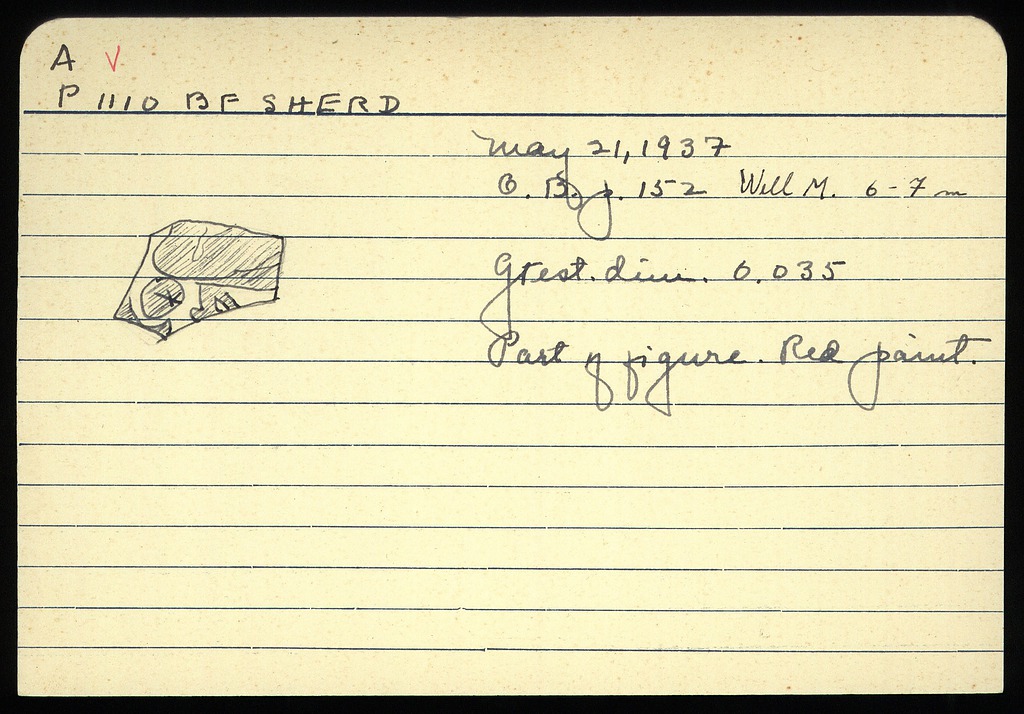 A V
P 1110 BF SHERD
May 21, 1937
O.B. p. 152 Well M. 6-7 m
Grest. dim. 0.035
Part of figure. Red paint.